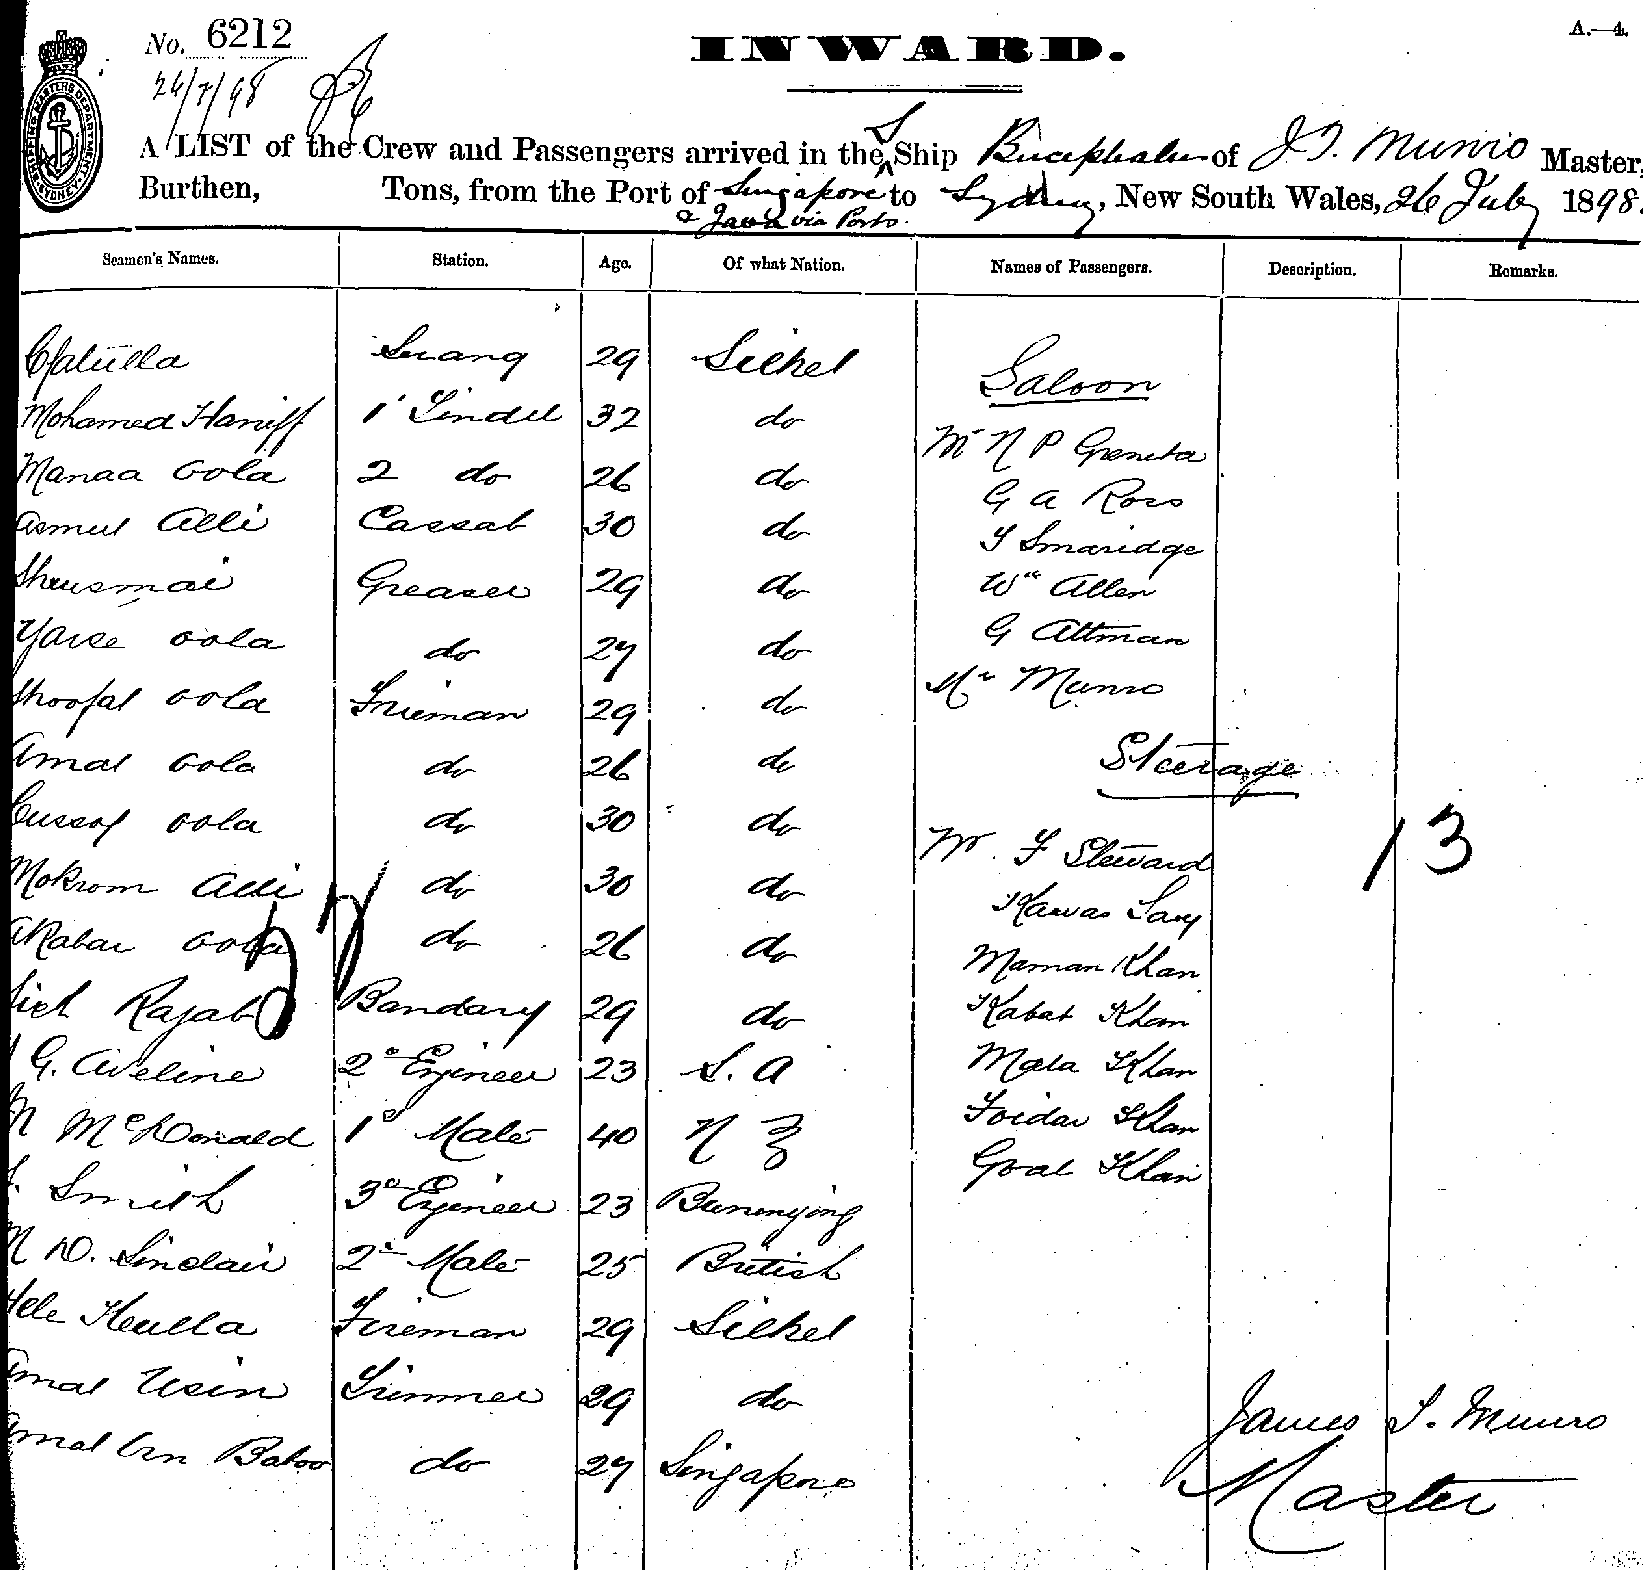 No. 6212
A.—4.
INWARD.
26/7/98
A LIST of the Crew and Passengers arrived in the S Ship Bucephalus of J. T. Munro Master,
Burthen, Tons, from the Port of Singapore to Sydney, New South Wales, 26 July 1898.
& Java via Ports.
Seamen's Names. Station. Age. Of what Nation. Names of Passengers. Description. Remarks.
29 Silhet
Saloon
Mohamed Haniff 1 Tindel 32 do
Mr N P
Manaa oola 2 do 26 do
G A Ross
Alli Cassab 30 do
T Smaridge
Greaser 29 do
Wm Allen
oola do 27 do
G Attman
oola Fireman 29 do
Munro
oola do 26 do
Steerage
oola do 30 do
F Steward
13
Mokrom Alli do 30 do
Akabar oola do 26 do
Maman Khan
Rajab Bandary 29 do
Kabat Khan
G. Aveline 2d Engineer 23 S. A
Mala Khan
McDonald 1st Mate 40 N Z
Foidar Khan
Smith 3d Engineer 23
Goal Khan
D. Sinclair 2d Mate 25 British
Fireman 29 Silhet
Usin Trimmer 29 do
James T. Munro
Baboo do 27 Singapore
Master